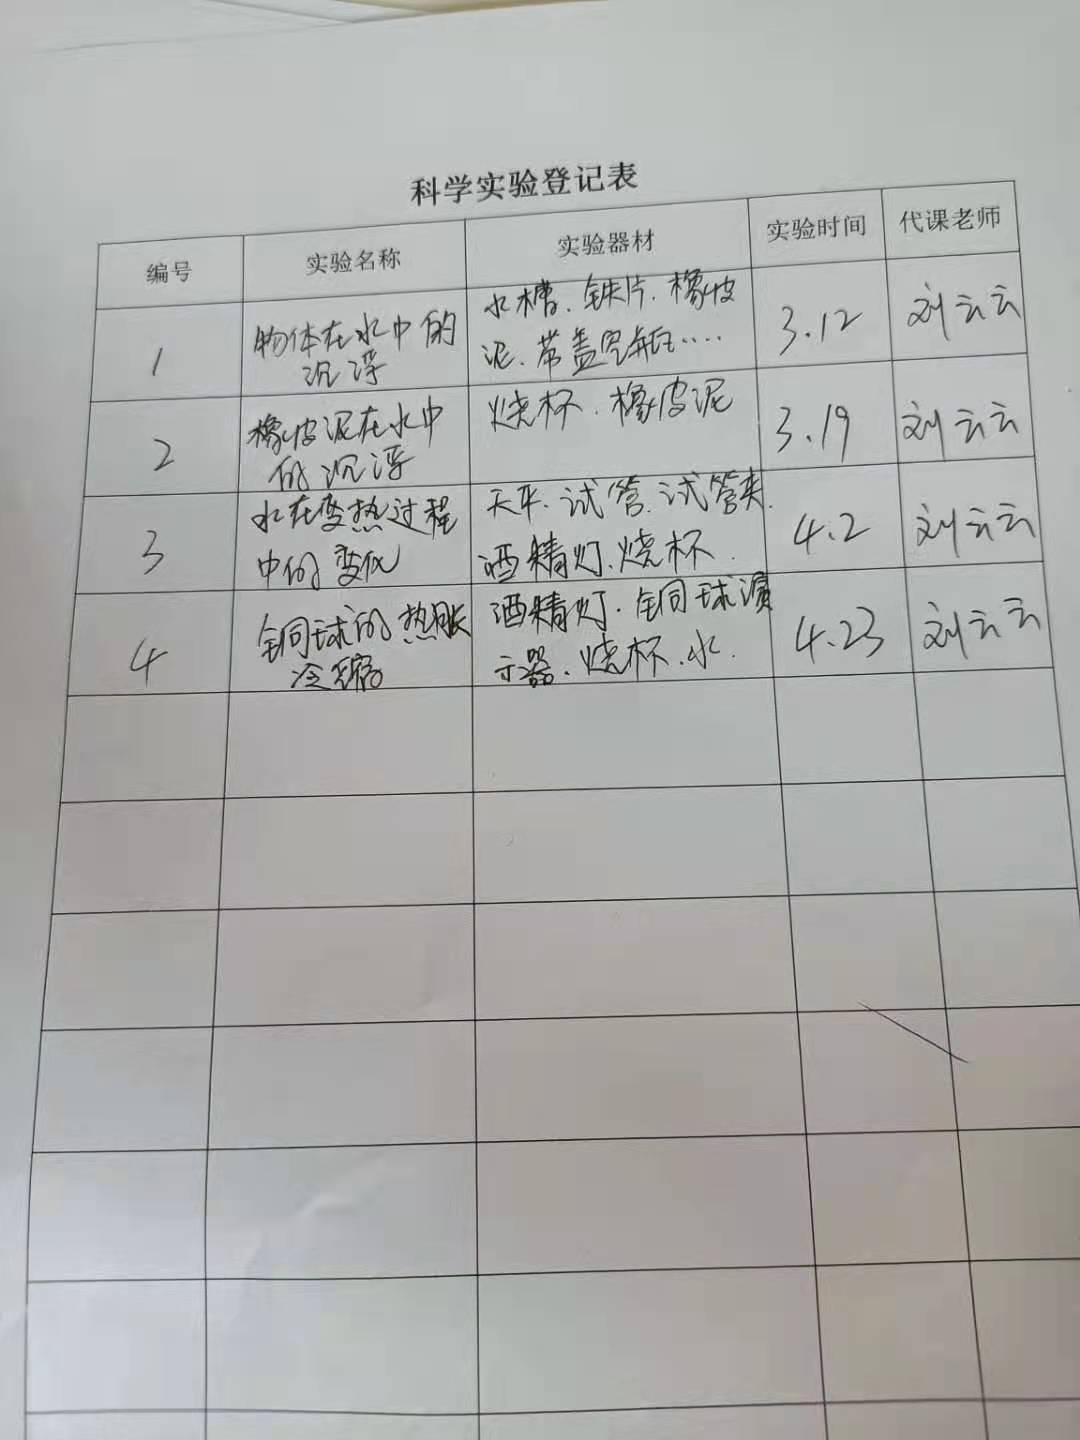 科学实验登记表
编号 实验名称 实验器材 实验时间 代课老师
1 物体在水中的 水槽、铁片、橡皮 3.12 刘云云
沉浮 泥、带盖空瓶……
2 橡皮泥在水中 烧杯、橡皮泥 3.19 刘云云
的沉浮
3 水在变热过程 天平、试管、试管夹、 4.2 刘云云
中的变化 酒精灯、烧杯.
4 铜球的热胀 酒精灯、铜球演 4.23 刘云云
冷缩 示器、烧杯、水.